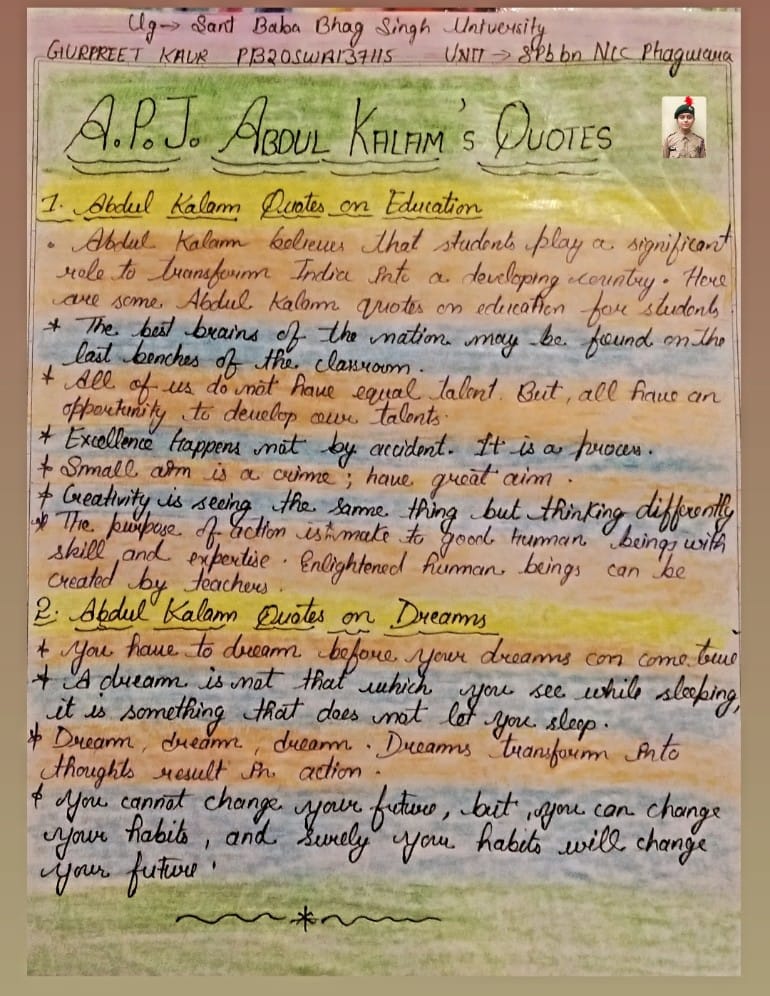 Ug→ Sant Baba Bhag Singh University
GURPREET KAUR PB20SWA137115 UNIT → 8Pb bn NCC Phagwara
A.P.J. ABDUL KALAM'S QUOTES
1. Abdul Kalam Quotes on Education
• Abdul Kalam believes that students play a significant
role to transform India into a developing country. Here
are some Abdul Kalam quotes on education for students.
* The best brains of the nation may be found on the
last benches of the classroom.
* All of us do not have equal talent. But, all have an
opportunity to develop our talents.
* Excellence happens not by accident. It is a process.
* Small aim is a crime; have great aim.
* Creativity is seeing the same thing but thinking differently
* The purpose of action is make to good human beings with
skill and expertise. Enlightened human beings can be
created by teachers.
2. Abdul Kalam Quotes on Dreams
* You have to dream before your dreams con come true
* A dream is not that which you see while sleeping,
it is something that does not let you sleep.
* Dream, dream, dream. Dreams transform into
thoughts result in action.
* You cannot change your future, but, you can change
your habits, and surely your habits will change
your future.